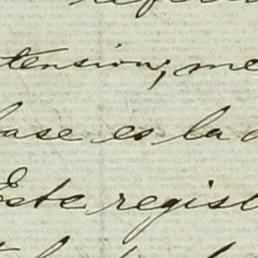 tension; me
base es la
Este regist